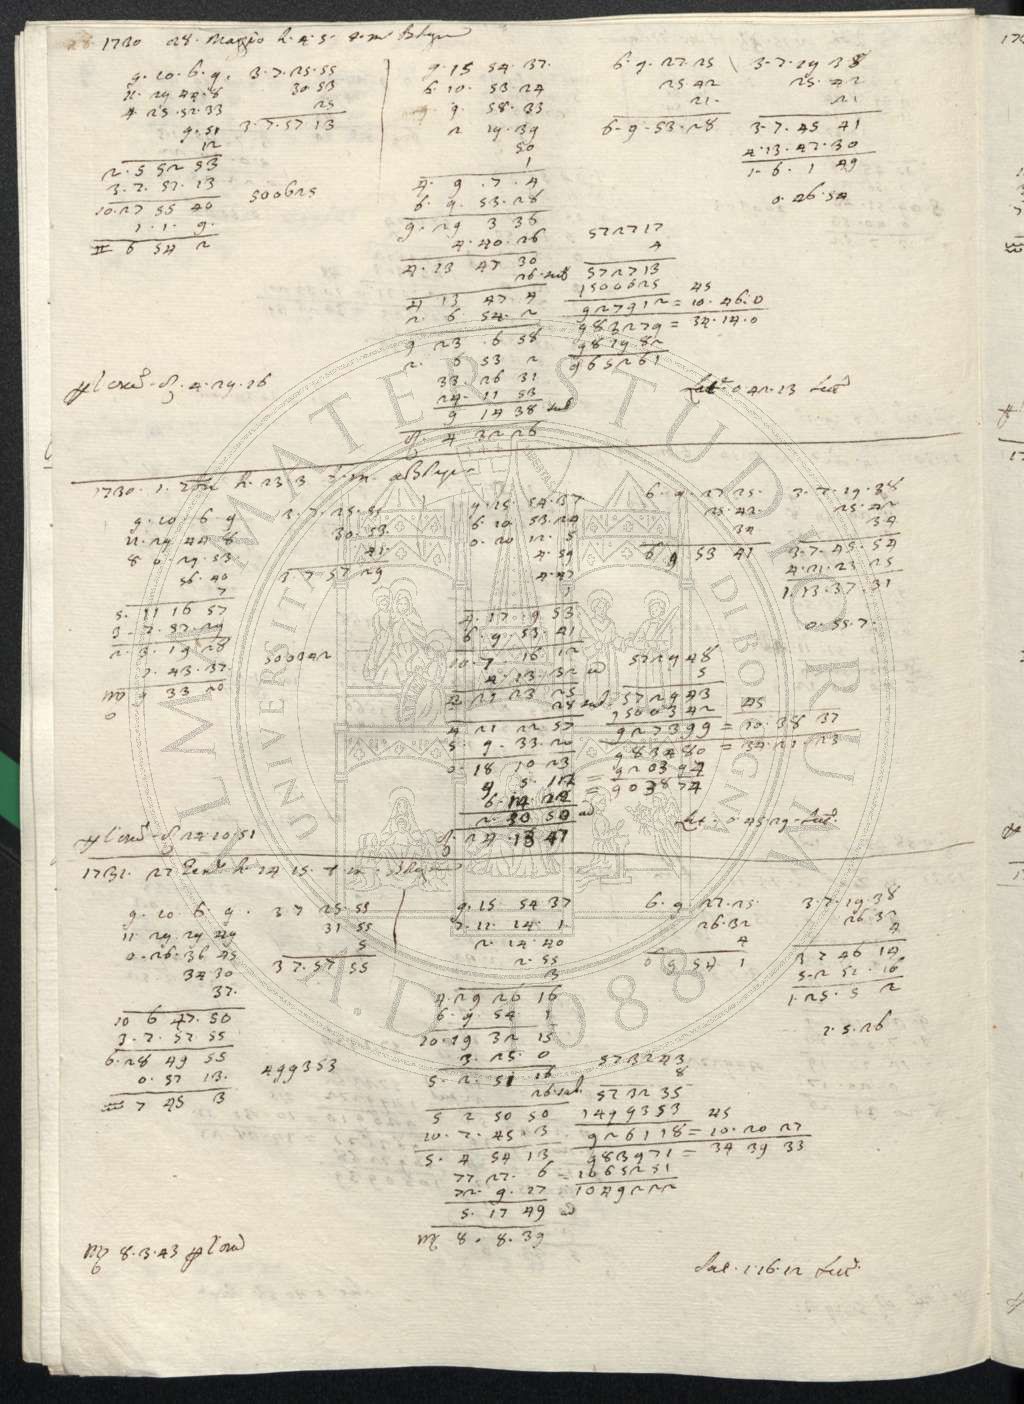 1730 28. Maggio h. 4. 5. t. m.
9. 20. 6. 9. 3. 7. 25. 55
11. 29 44. 8 30. 53
4 25. 52. 33 25
9. 51 3. 7. 57 13
12
2. 5 52 53
3. 7. 57. 13
10. 27 55 40 500625
1. 1. 9.
6 54 2
9. 15 54. 37.
6. 20. 53 24
9. 58. 33
2 19. 39
50
1
4. 9. 7. 4
6. 9. 53. 28
9. 29 3 36
4. 40. 26
4. 13 47 30
26. sub
4 13 47. 4
2. 6. 54. 2
9 23. 6 58
2. 6 53 2
33. 26 31
24. 11 53
9 14 38 sub
4 32 26
6. 9. 27 25 3. 7. 19 38
25 42 25. 42
21. 21
6. 9. 53. 28 3. 7. 45 41
4. 13. 47. 30
1. 6. 1 49
0. 46. 54
572717
4
572713
1500625 45
927912 = 10. 46. 0
983279 = 34. 14. 0
981982
965261
4. 29. 26
0 42. 13
1730. 1. h. 23. 3 t. m.
9. 20. 6. 9 3. 7. 25. 55
11. 29 44 8 30. 53.
8 0. 29. 53 41.
56. 40 3. 7 57 29
7
5. 11 16 57
3. 7. 57. 29
2. 3. 19 28
1. 43. 37. 500342
9 33 20
9. 15. 54. 37
6 20 53. 24
0. 20 12. 5
4. 59
4. 47
1
4. 17. 9 53
6. 9. 53. 41
10. 7. 16. 12
4. 13 32 ad
4 21 23 25
28 sub
4 21 22 57
5. 9. 33. 20
0. 18 10 23
6. 9. 27 25. 3. 7. 19. 38
25. 42. 25. 42
34 34
6 9 53 41 3. 7. 45. 54
4. 21. 23 25
1. 13. 37. 31
0. 55. 7.
572948
5
572943
1500342 45
927399 = 10. 38 37
983480 = 34 21. 23
920394
903874
2. 30 50 ad
24. 13 47
24 20. 51
0. 45. 29
1731. 27 h. 24 15. t. m.
9. 20. 6. 9. 3 7 25. 55
11 29 29 49 31 55
0. 26. 36 45 5
34 30 3 7. 57. 55
37.
10 6 47. 50
3. 7. 57 55
6. 28 49 55
0. 57 13. 499353
7 45 3
9. 15 54 37
7. 11. 24. 1.
2. 14 40
2. 55
3
4. 29 26 16
6. 9. 54. 1
10. 19 32 15
3. 25. 0
5. 2. 51 16
26 sub
5 2 50 50
10. 7. 45. 3
5. 4 54 13
77 27. 6
72. 9. 27
5. 17 49 ad
8. 8. 39
6. 9. 27. 25. 3. 7. 19. 38
26. 32 26. 32
4 4
6 9 54 1 3 7 46 14
5. 2 51. 16
1. 25. 5 2
1. 5. 26
573243
8
573235
1499353 45
926118 = 10. 20 27
983971 = 34 39 33
1065251
1049222
8. 3. 43
1. 16. 12
ALMA MATER STUDIORUM
UNIVERSITA DI BOLOGNA
A.D. 1088